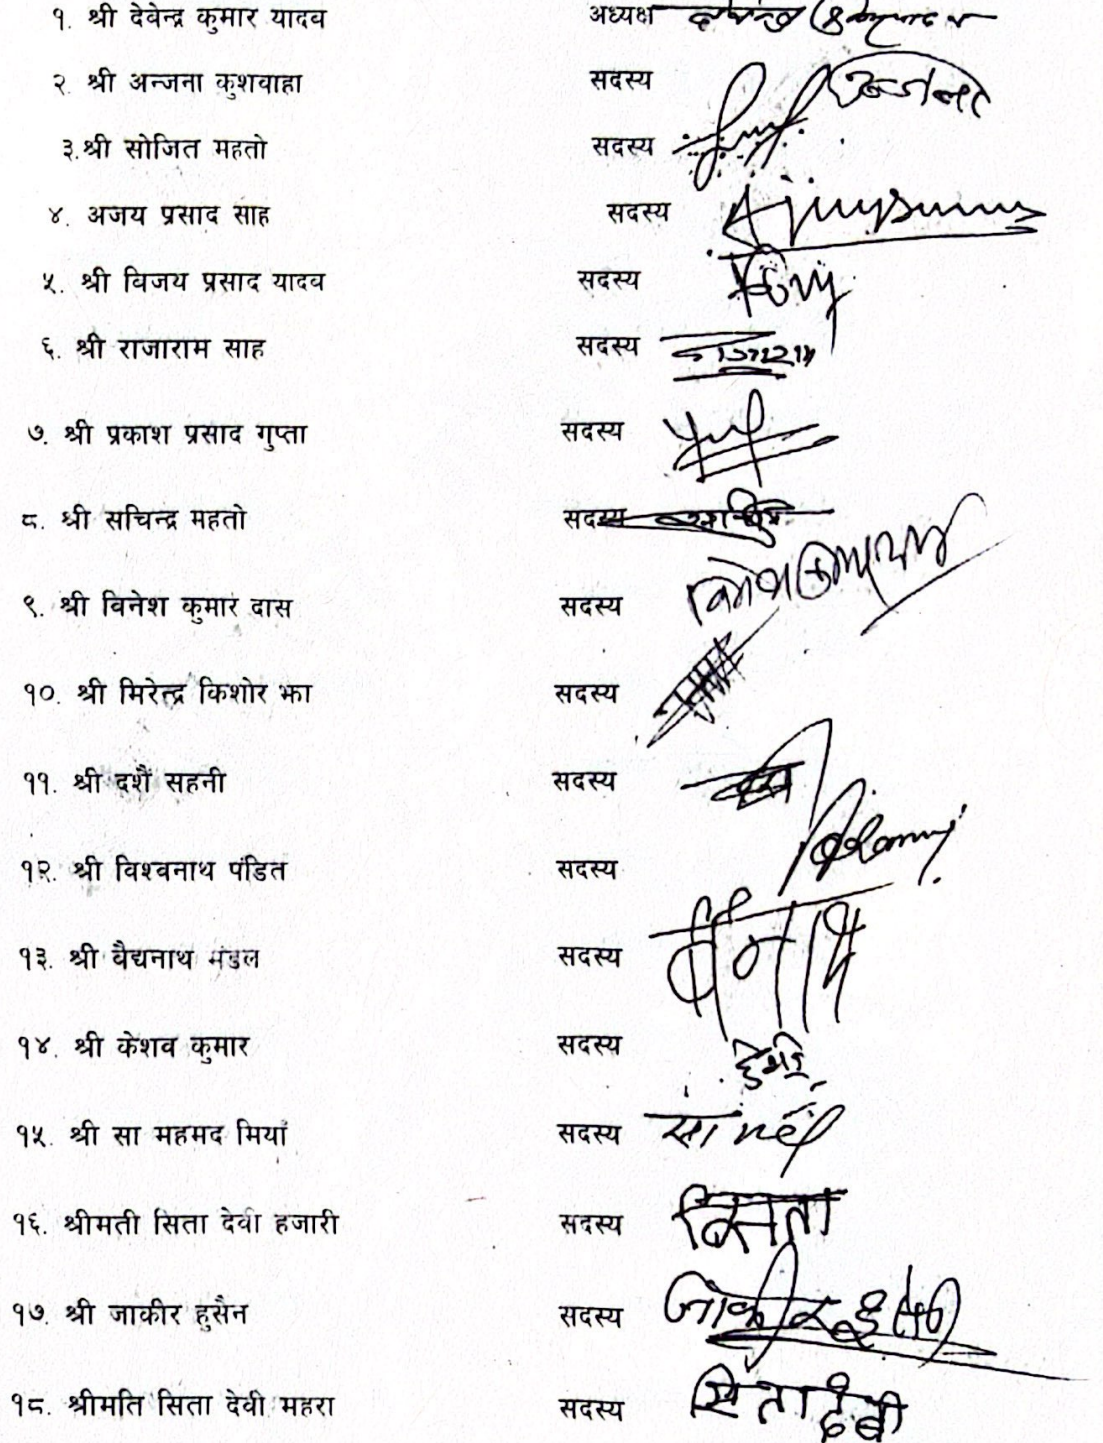 १. श्री देवेन्द्र कुमार यादव अध्यक्ष
२. श्री अन्जना कुशवाहा सदस्य
३.श्री सोजित महतो सदस्य
४. अजय प्रसाद साह सदस्य
५. श्री विजय प्रसाद यादव सदस्य
६. श्री राजाराम साह सदस्य राजाराम
७. श्री प्रकाश प्रसाद गुप्ता सदस्य
८. श्री सचिन्द्र महतो सदस्य
९. श्री विनेश कुमार दास सदस्य
१०. श्री मिरेन्द्र किशोर झा सदस्य
११. श्री दशैं सहनी सदस्य
१२. श्री विश्वनाथ पंडित सदस्य
१३. श्री वैद्यनाथ मंडल सदस्य
१४. श्री केशव कुमार सदस्य
१५. श्री सा महमद मियां सदस्य
१६. श्रीमती सिता देवी हजारी सदस्य सिता
१७. श्री जाकीर हुसैन सदस्य जाकीर
१८. श्रीमति सिता देवी महरा सदस्य सिता देवी